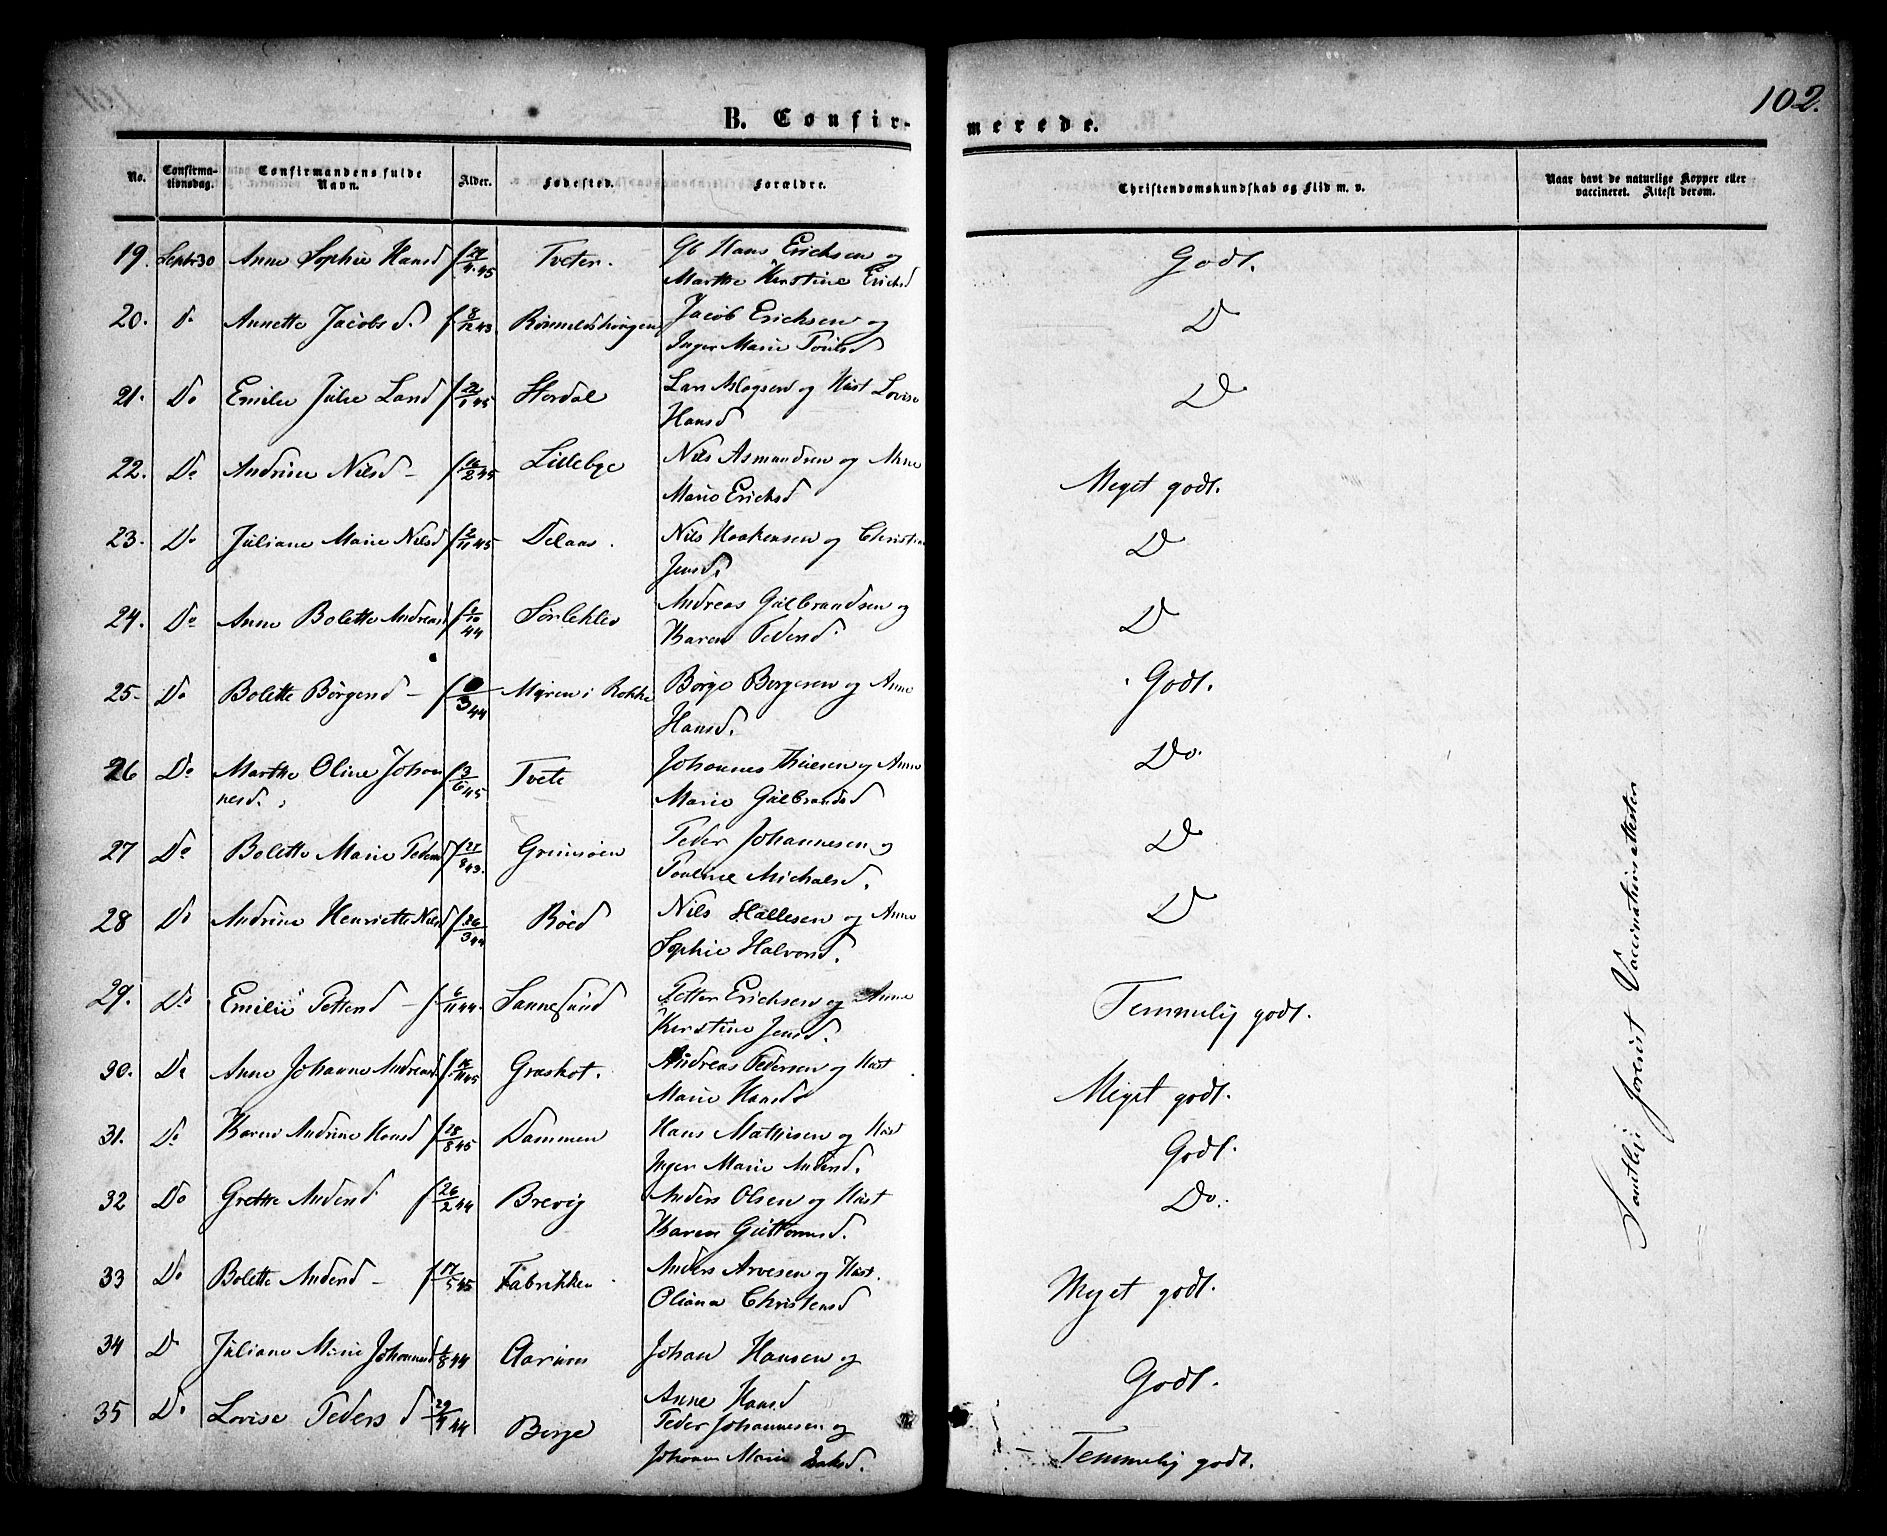 102.
B. Confir- merede.
No. Confirma-tionsdag. Confirmandens fulde Navn. Alder. Fødested. Forældre. Christendomskundskab og Flid m. v. Naar havt de naturlige Kopper eller vaccineret. Attest derom.
19. Septr 30 Anne Sophie Hansd f 4.45 Tveter. Gb Hans Erichsen og Godt.
Marthe Kirstine Ericksd
20. d. Annette Jacobsd. f 8/12 43 Jacob Erichsen og D
Inger Marie
21. Do Emilie Julie Larsd f 1 45 Stordal Lars Aslagsen og Hust Lovise D
Hansd
22. Do Andrine Nilsd - f 16/2 45 Lillebye Nils Asmundsen og Anne Meget godt.
Marie Ericksd
23. Do Juliane Marie Nilsd f 11 45 Delaas. Nils Haakensen og Christine D
Jensd.
24. Do Anne Bolette Andreasd f 10 44 Sørleklev Andreas Gulbrandsen og D
Karen Pedersd.
25. Do Bolette Börgersd - f 3 44 Myren i Rokke Börge Borgersen og Anne Godt.
Hansd.
26 Do Marthe Oline Johan f 3/6 45 Tvete Johannes og Anne Do.
nesd. Marie Gulbrandsd
27 Do Bolette Marie Pedersd f 27/8 43. Grimsöen Peder Johannesen og D
Pauline Michalsd.
28 Do Andrine Henriette Nilsd f 26/3 44 Röed Nils Hallesen og Anne D
Sophie Halvorsd.
29. Do Emilie Pettersd - f. 6/11 44. Sannesund Petter Erichsen og Anne Temmelig godt.
Kirstine Jensd.
30. Do Anne Johanne Andreasd f 16/11 45 Graskot. Andreas Pedersen og Hust Meget godt.
Marie Hansd
31. Do Karen Andrine Hansd f 28/8 45 Dammen Hans Mathisen og Hust Godt.
Inger Marie Andersd.
32 Do Grethe Andersd f 26/2 44 Brevig Anders Olsen og Hust Do.
Karen Guttormsd.
33 Do Bolette Andersd - f 17/5 45 Fabrikken Anders Arvesen og Hust. Meget godt.
Oliana Christensd
34 D Juliane Marie Johannesd 8 44 Aarum Johan Hansen og Godt.
Anne Hansd
35 Do Lovise Pedersd 29/ 44 Berge Peder Johannesen og Temmelig godt.
Johanne Marie
Samtlige forevist Vaccinationsattester